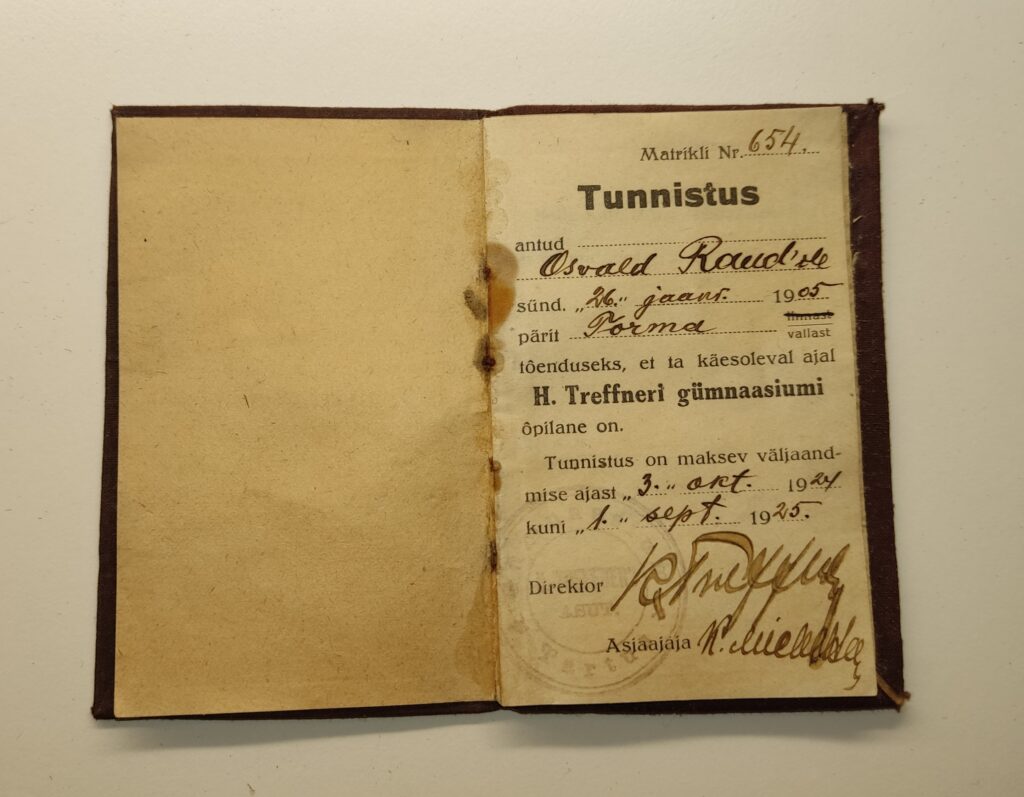 Matrikli Nr. 654.
Tunnistus
antud
Osvald Raud'ile
sünd. „26." jaanr. 1905
pärit Torma linnast
vallast
tõenduseks, et ta käesoleval ajal
H. Treffneri gümnaasiumi
õpilane on.
Tunnistus on maksev väljaand-
mise ajast „3." okt. 1924
kuni „1." sept. 1925.
Direktor K. Treffner
Asjaajaja
Tartu